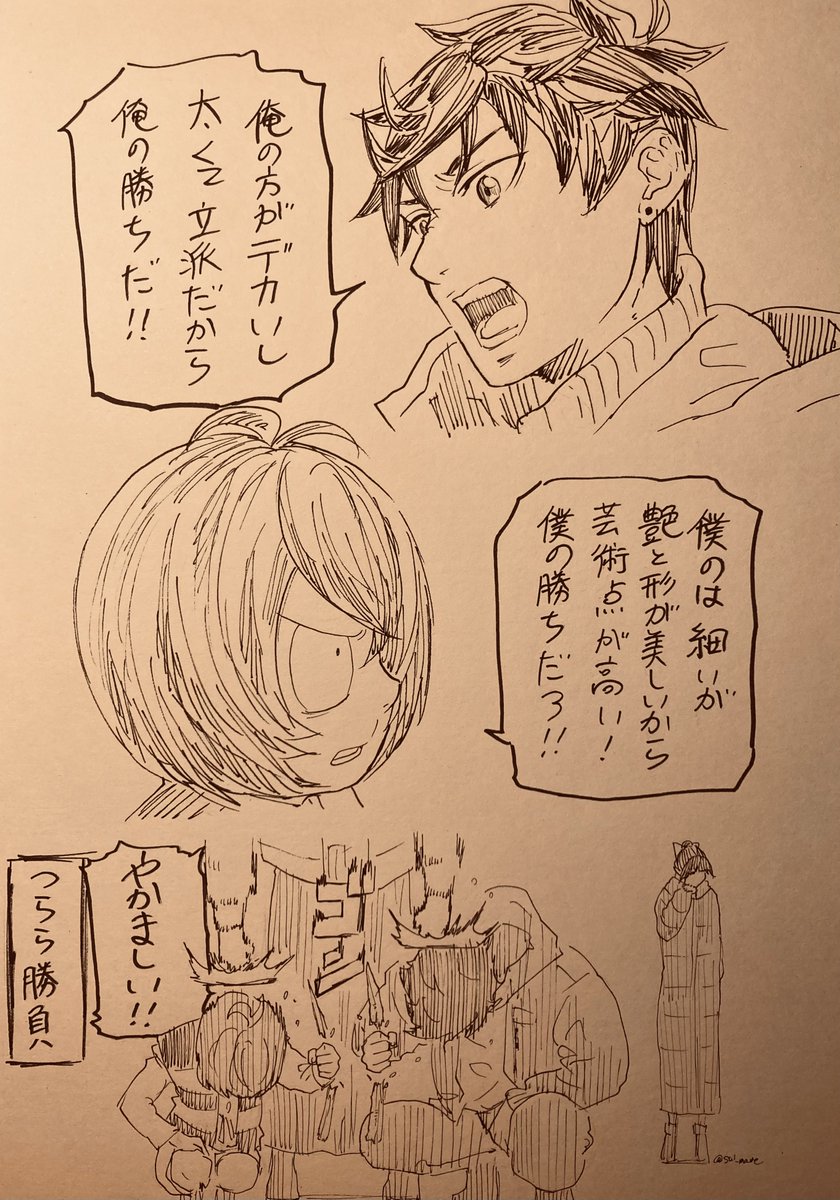 俺の方がデカいし
太くて立派だから
俺の勝ちだ!!
僕のは細いが
艶と形が美しいから
芸術点が高い!
僕の勝ちだろ!!
ゴン
やかましい!!
つらら勝負